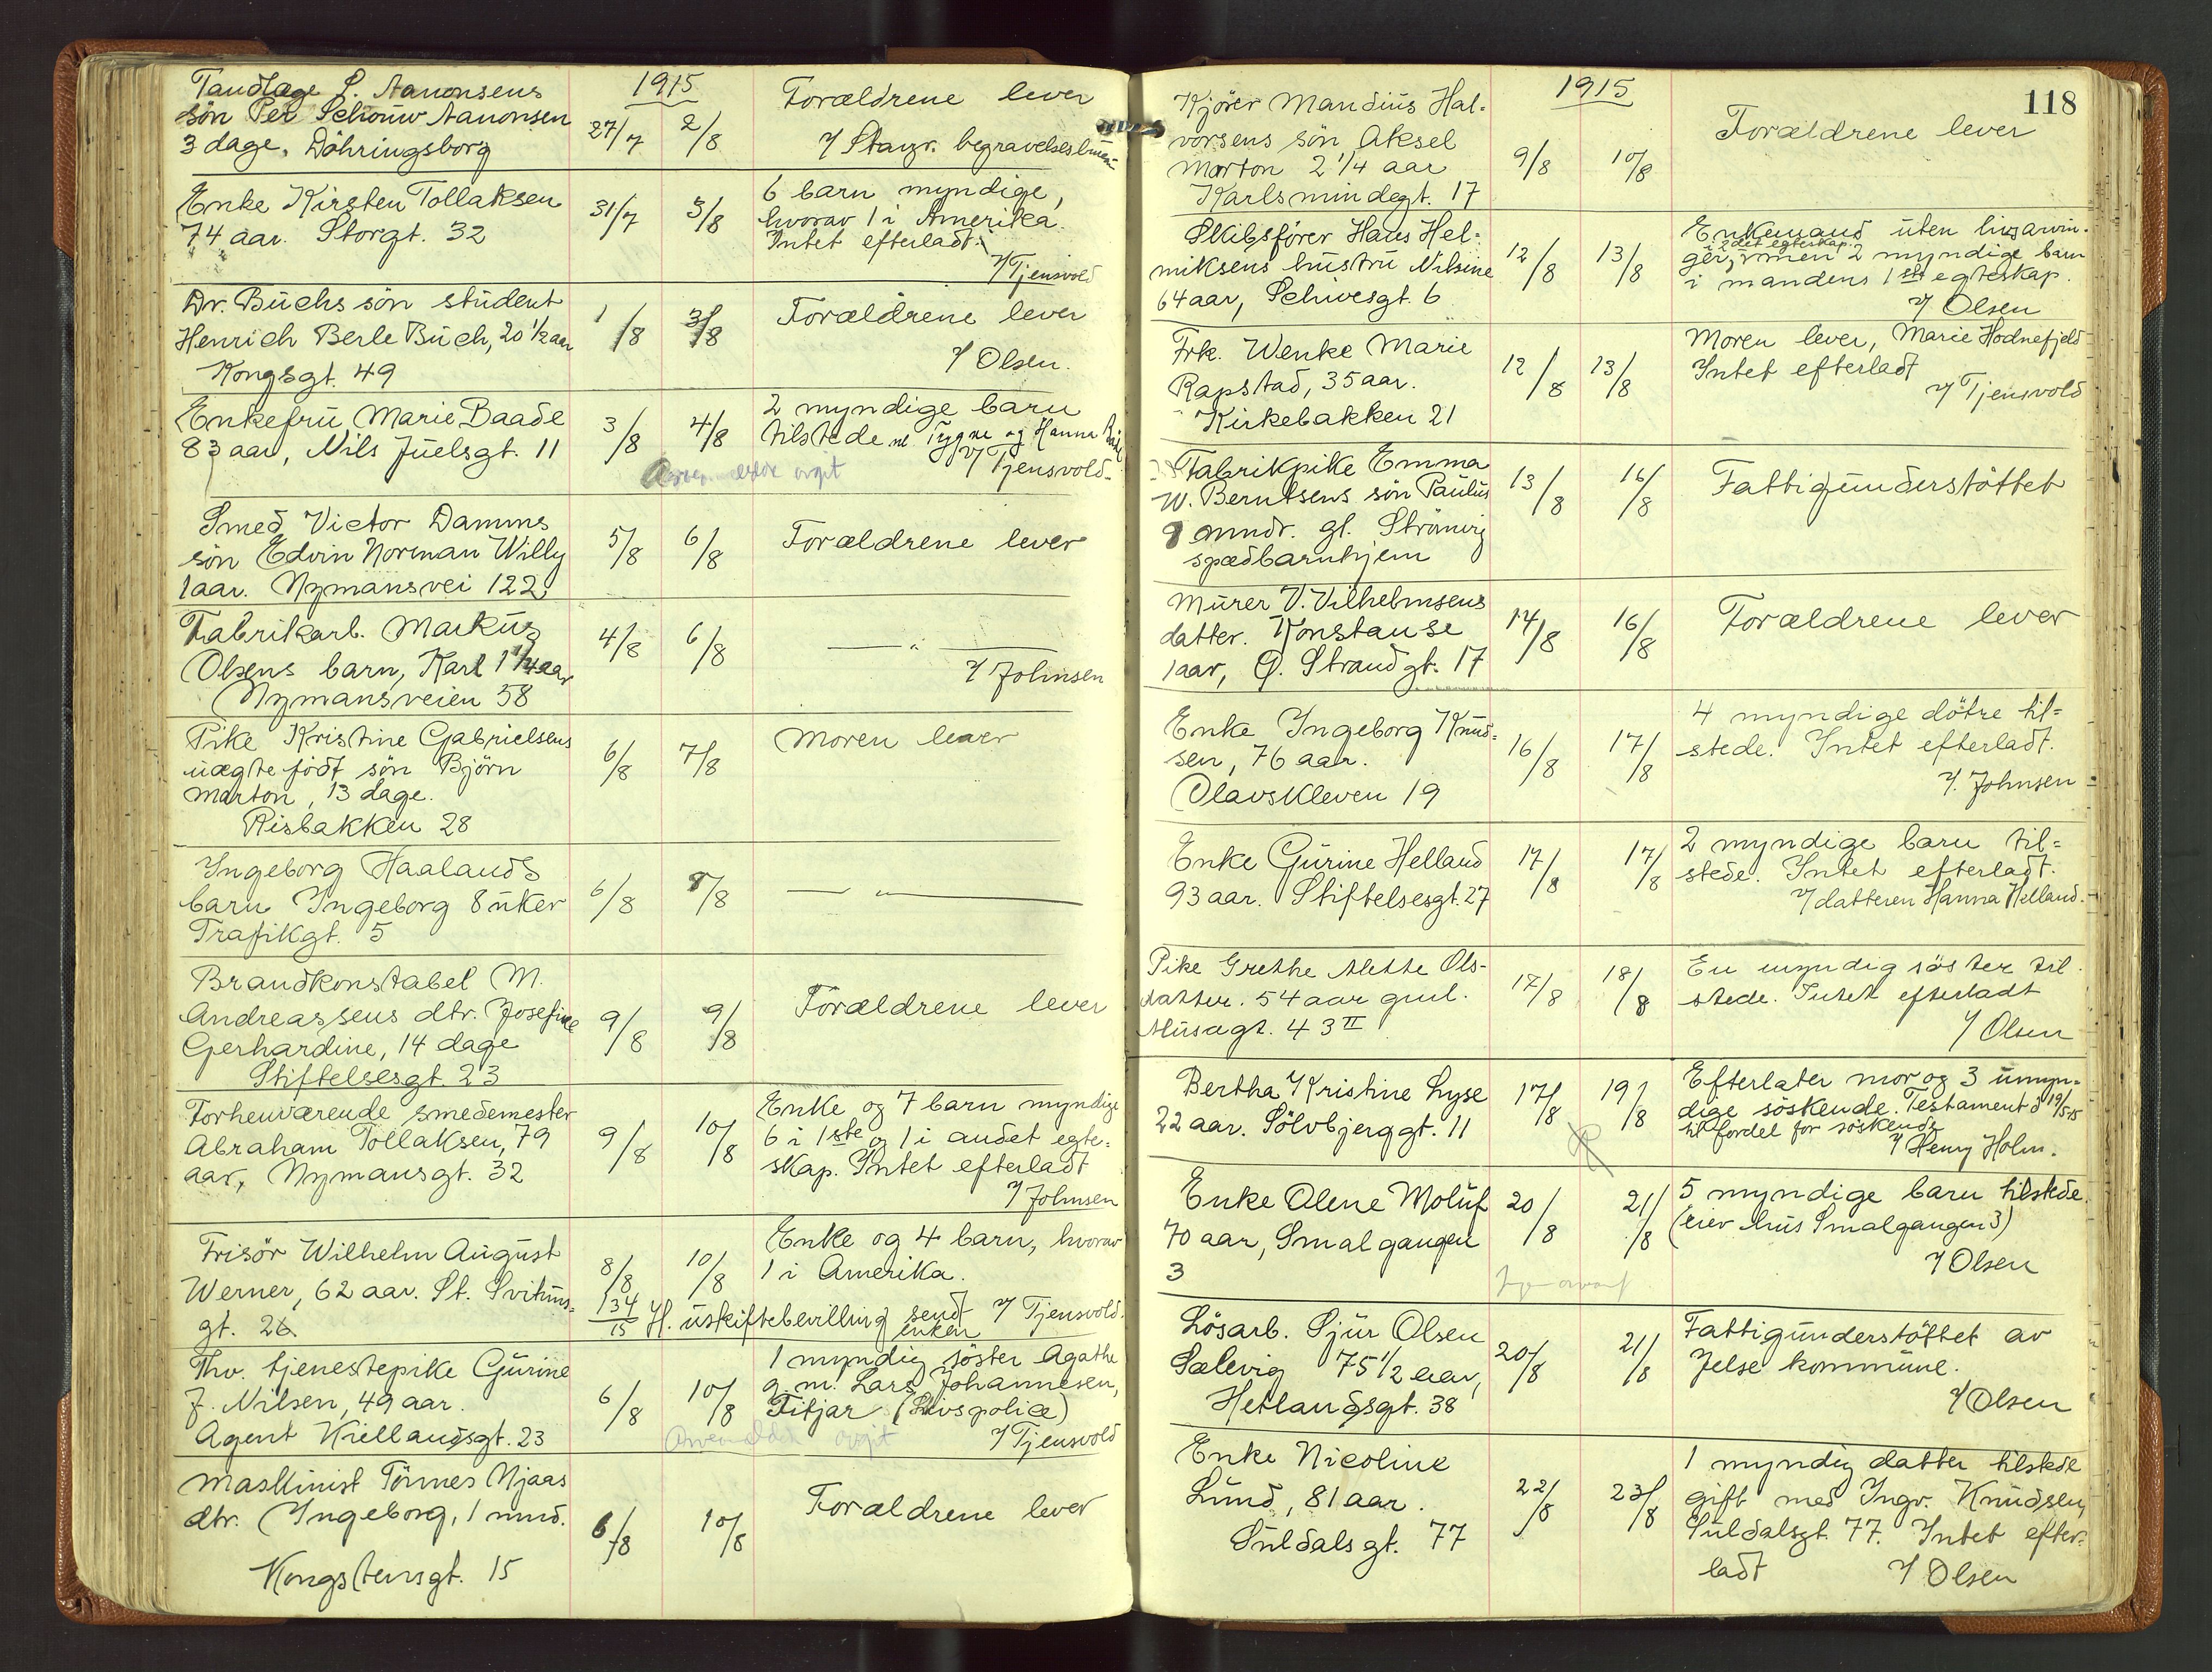 1915
Tandlæge S. Aanonsens
sön Per Schouw Aanonsen
3 dage. Döhringsborg
27/7 2/8
Forældrene lever
v/ Stavgr. begravelses
Enke Kirsten Tollaksen
74 aar. Storgt. 32
31/7 3/8
6 barn myndige,
hvorav 1 i Amerika.
Intet efterladt.
v/ Tjensvold
Dr. Buchs sön student
Henrich Berle Buch, 20 1/2 aar
Kongsgt. 49
1/8 3/8
Forældrene lever
v/ Olsen.
Enkefru Marie Baade
83 aar, Nils Juelsgt. 11
3/8 4/8
2 myndige barn
tilstede nl. Tygne og Hanna
v/ Tjensvold
avgit
Smed Victor Damms
sön Edvin Norman Willy
1 aar. Nymansvei 122
5/8 6/8
Forældrene lever
Fabrikarb. Markus
Olsens barn, Karl 1 1/4 aar
Nymansveien 58
4/8 6/8
— " —
v/ Johnsen
Pike Kristine Gabrielsens
uægte födt sön Björn
Marton, 13 dage.
Risbakken 28
6/8 7/8
Moren lever
Ingeborg Haalands
barn Ingeborg 8 uker
Trafikgt. 5
6/8 8/8
— " —
Brandkonstabel M.
Andreassens dtr. Josefine
Gerhardine, 14 dage
Stiftelsesgt. 23
9/8 9/8
Forældrene lever
Forhenværende smedemester
Abraham Tollaksen, 79
aar, Nymansgt. 32
9/8 10/8
Enke og 7 barn myndige
6 i 1ste og 1 i andet egte=
skap. Intet efterladt
v/ Johnsen
Frisör Wilhelm August
Werner, 62 aar. St. Svituns=
gt. 26
8/8 10/8
Enke og 4 barn, hvorav
1 i Amerika.
134/15 Hf. uskiftebevilling sendt enken v/ Tjensvold.
Fhv. tjenestepike Gurine
J. Nilsen, 49 aar.
Agent Kiellandsgt. 23
6/8 10/8
1 myndig söster Agathe
g. m. Lars Johannesen,
Fitjar (Livspolice)
v/ Tjensvold
avgit
Maskinist Tönnes Njaas
dtr. Ingeborg, 1 mnd.
Kongstensgt. 15
6/8 10/8
Forældrene lever
118
1915
Kjörer Mandius Hal-
vorsens sön Aksel
Marton 2 1/4 aar
Karlsmindegt. 17
9/8 10/8
Forældrene lever
Skibsförer Hans Hel-
miksens hustru Nilsine
64 aar, Schivesgt. 6
12/8 13/8
Enkemand uten livsarvin-
i 2det egteskap
ger, men 2 myndige barn
i mandens 1ste egteskap.
v/ Olsen
Frk. Wenke Marie
Rapstad, 35 aar.
Kirkebakken 21
12/8 13/8
Moren lever, Marie Hodnefjeld
Intet efterladt
v/ Tjensvold
Fabrikpike Emma
W. Berntsens sön Paulus
8 mndr. gl. Strömvig
spædbarnhjem
13/8 16/8
Fattigunderstöttet
Murer V. Vilhelmsens
datter. Konstanse
1 aar, Ø. Strandgt. 17
14/8 16/8
Forældrene lever
Enke Ingeborg Knud=
sen, 76 aar.
Olavskleven 19
16/8 17/8
4 myndige dötre til=
stede. Intet efterladt.
v. Johnsen
Enke Gurine Helland
93 aar. Stiftelsesgt. 27
17/8 17/8
2 myndige barn til=
stede. Intet efterladt.
v/ datteren Hanna Helland.
Pike Grethe Mette Ols-
datter. 54 aar gml.
Musægt. 43 II
17/8 18/8
En myndig söster til
stede. Intet efterladt
v/ Olsen
Bertha Kristine Lyse
22 aar. Sölvbjerggt. 11
17/8 19/8
Efterlater mor og 3 umyn=
dige söskende. Testament d 19/5 15
til fordel for söskende
v/ Heny Holm.
Enke Olene Moluf
70 aar, Smalgangen
3
20/8 21/8
5 myndige barn tilstede.
(eier hus Smalgangen 3)
v/ Olsen
Lösarb. Sjur Olsen
Sælevig 75 1/2 aar,
Hetlandsgt. 38
20/8 21/8
Fattigunderstöttet av
Jelse kommune.
v/ Olsen
Enke Nicoline
Lund, 81 aar.
Suldalsgt. 77
22/8 23/8
1 myndig datter tilstede
gift med Ingv. Knudsen,
Suldalsgt. 77. Intet efter-
ladt v/ Olsen